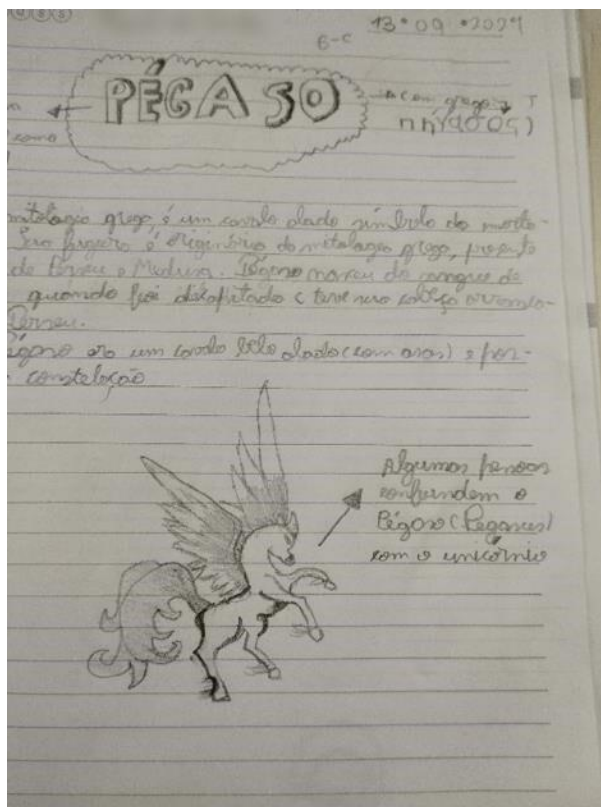 6-C 13 • 09 • 2021
PÉGASO
(em grego
como
mitologia grega, é um cavalo alado símbolo da
Sua figura é originária da mitologia grega, presente
de Perseu e Medusa. Pégaso nasceu do sangue de
quando foi decapitada e teve seu cabeça
Perseu.
era um cavalo belo alado (com asas) e
constelação
Algumas pessoas
confundem o
Pégaso (Pegasus)
com o unicórnio